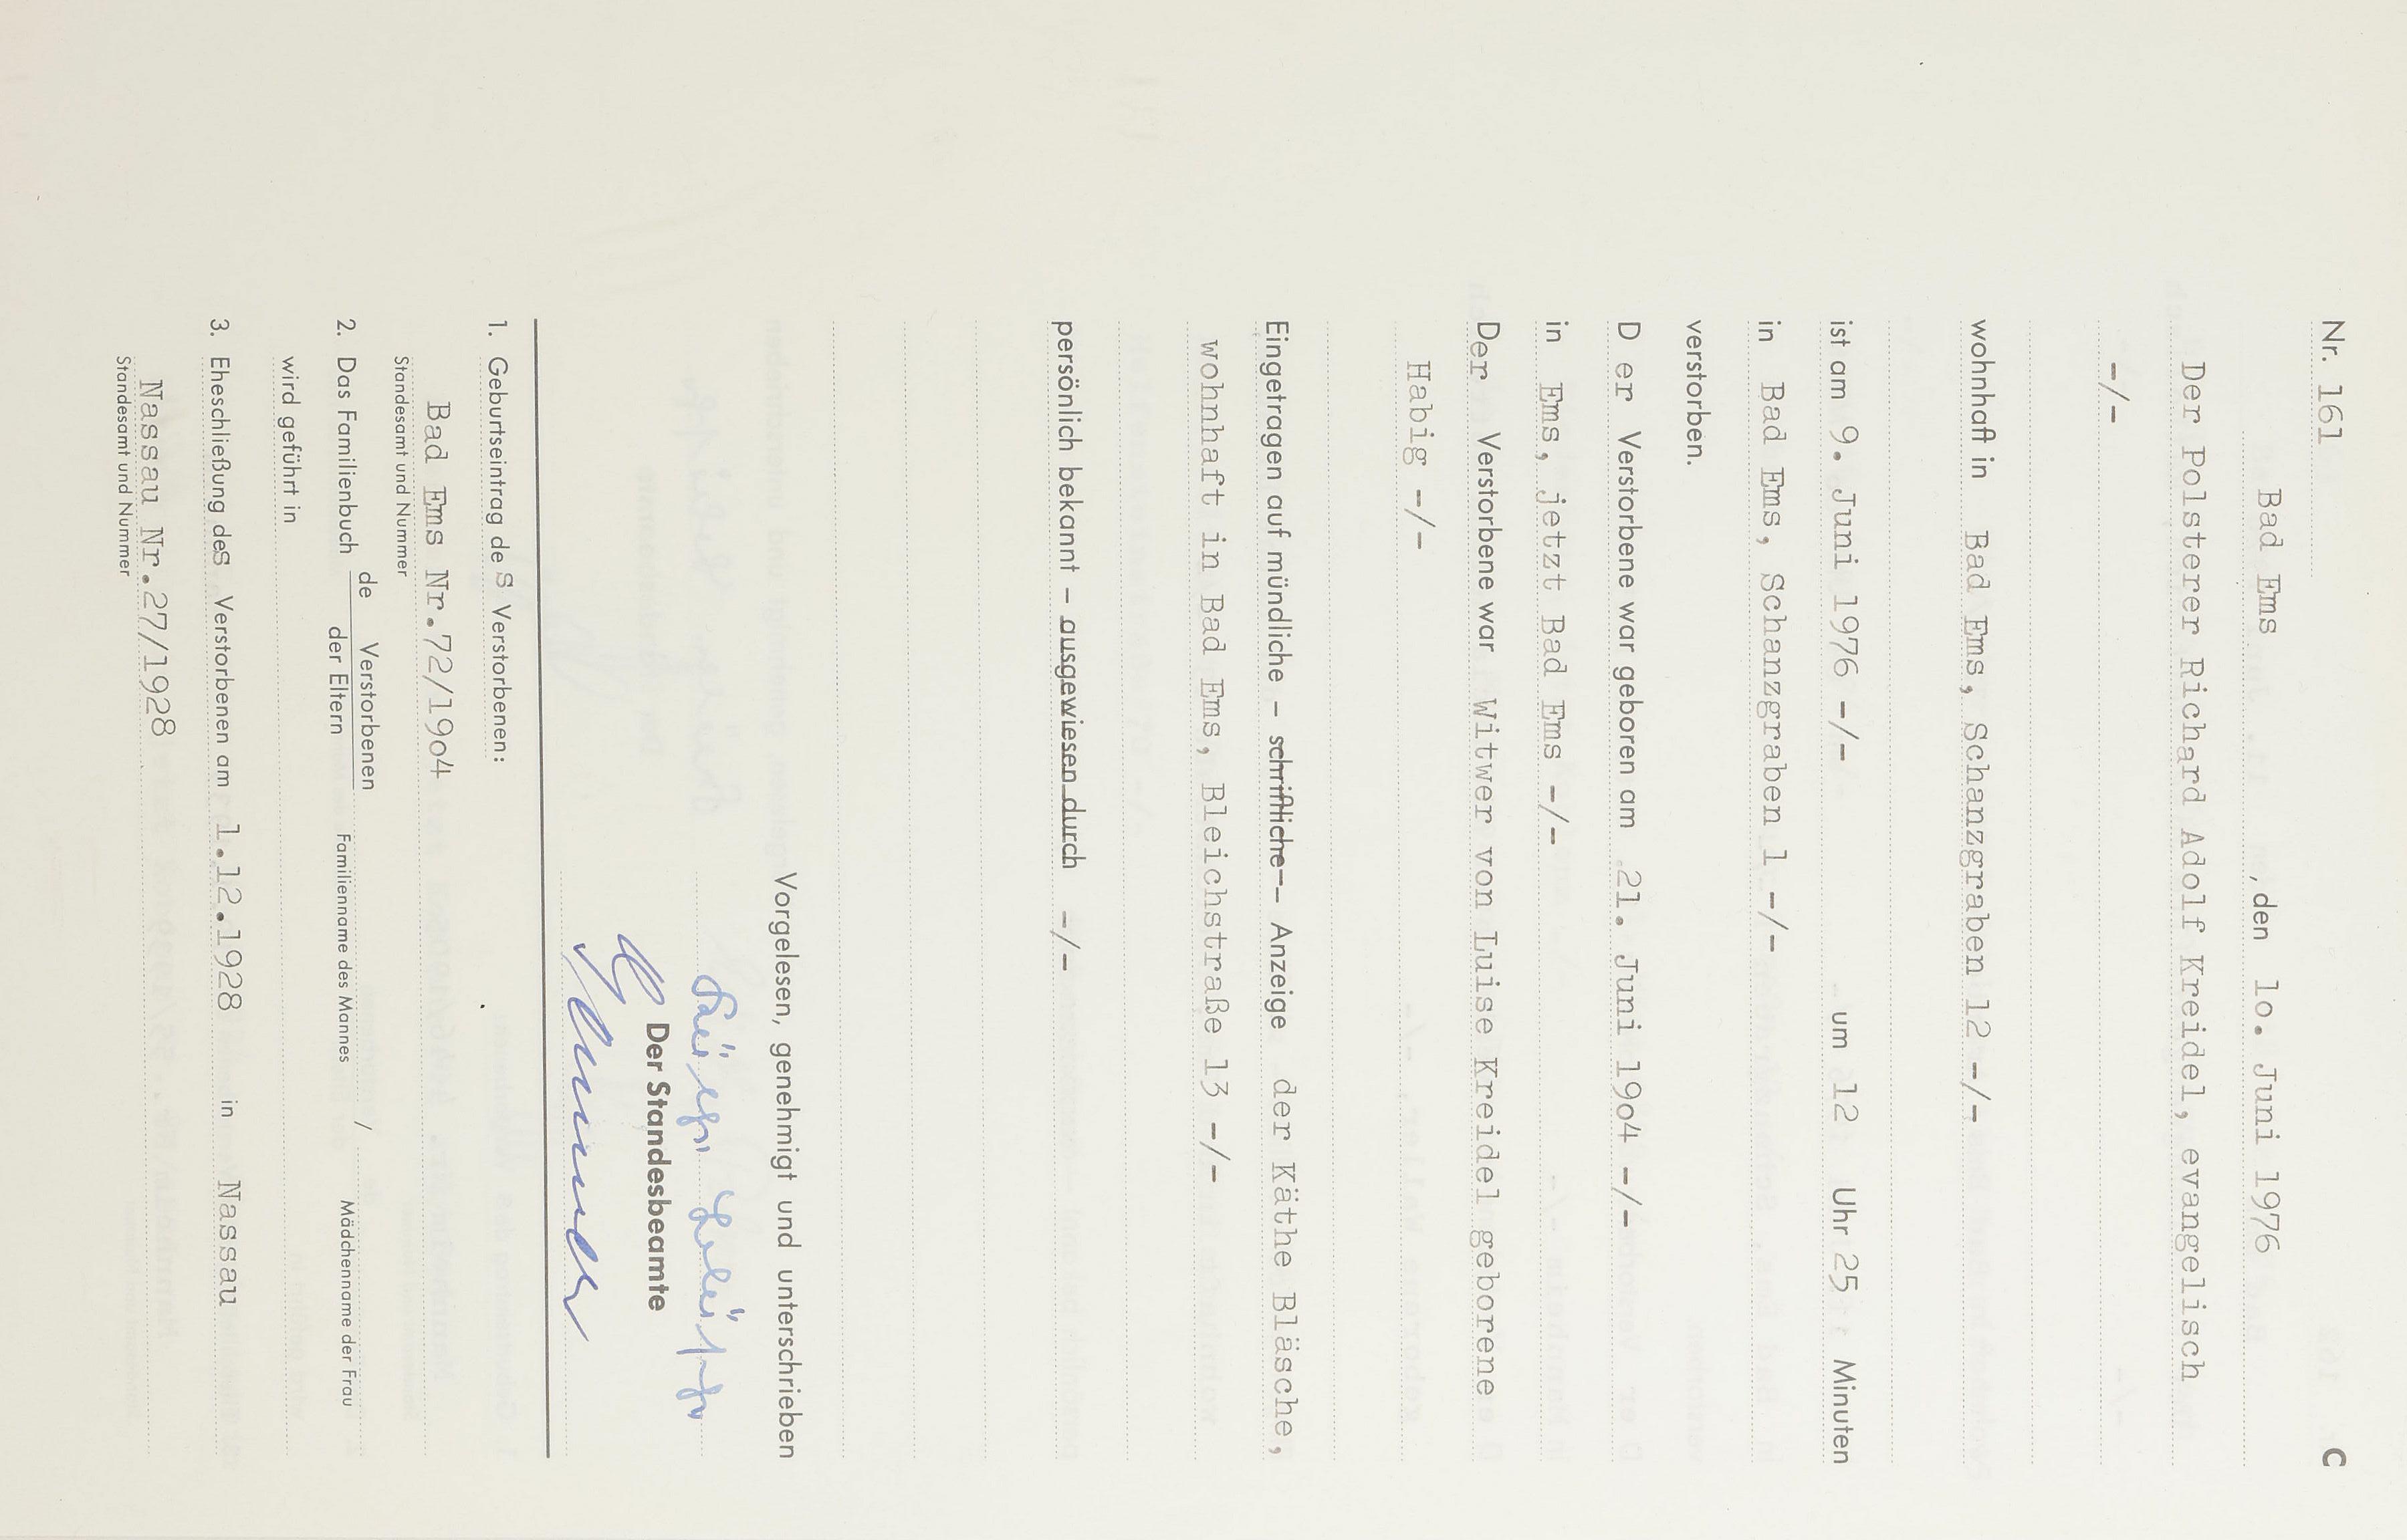 Nr. 161 C
Bad Ems , den 1o. Juni 1976
Der Polsterer Richard Adolf Kreidel, evangelisch
-/-
wohnhaft in Bad Ems, Schanzgraben 12 -/-
ist am 9. Juni 1976 -/- um 12 Uhr 25 Minuten
in Bad Ems, Schanzgraben 1 -/-
verstorben.
D er Verstorbene war geboren am 21. Juni 19o4 -/-
in Ems, jetzt Bad Ems -/-
Der Verstorbene war Witwer von Luise Kreidel geborene
Habig -/-
Eingetragen auf mündliche – schriftliche – Anzeige der Käthe Bläsche,
wohnhaft in Bad Ems, Bleichstraße 13 -/-
persönlich bekannt – ausgewiesen durch -/-
Vorgelesen, genehmigt und unterschrieben
Der Standesbeamte
1. Geburtseintrag de s Verstorbenen:
Bad Ems Nr.72/19o4
Standesamt und Nummer
2. Das Familienbuch de Verstorbenen / 
der Eltern Familienname des Mannes Mädchenname der Frau
wird geführt in
3. Eheschließung des Verstorbenen am 1.12.1928 in Nassau
Nassau Nr.27/1928
Standesamt und Nummer